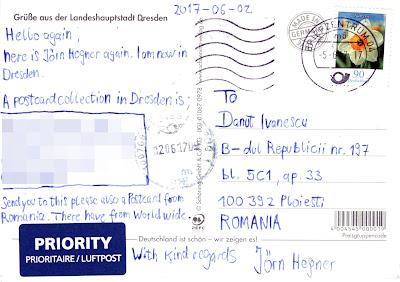 Grüße aus der Landeshauptstadt Dresden
2017-06-02
Hello again,
here is Jörn Hegner again. I am now in
Dresden.
A postcard collection in Dresden is;
Send you to this please also a Postcard from
Romania. There have from World wide.
PRIORITY
PRIORITAIRE / LUFTPOST
Deutschland ist schön – wir zeigen es!
With Kind regards Jörn Hegner
BRIEFZENTRUM 04
90
02.06.17
To
Danut Ivanescu
B-dul Republicii nr. 197
bl. 5C1, ap. 33
100 392 Ploiesti
ROMANIA
4 004545 000019
Preisgruppenmode